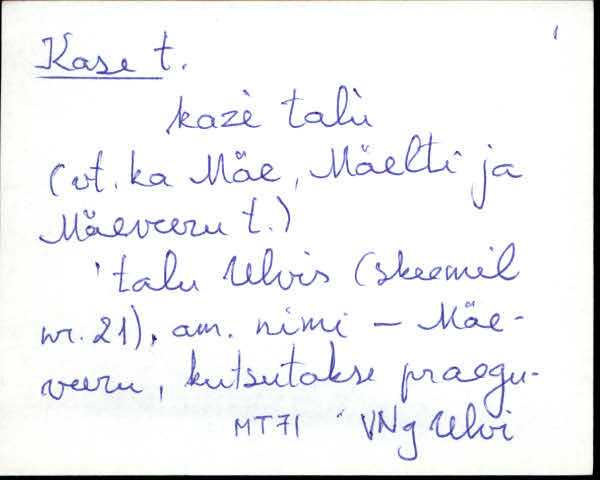 1
Kase t.
kazè talù
(vt. ka Mäe, Mäelti ja
Mäeveeru t.)
' talu Ulvis (skeemil
nr. 21), am. nimi – Mäe-
veeru, kutsutakse praegu-
MT71 ' VNg Ulvi